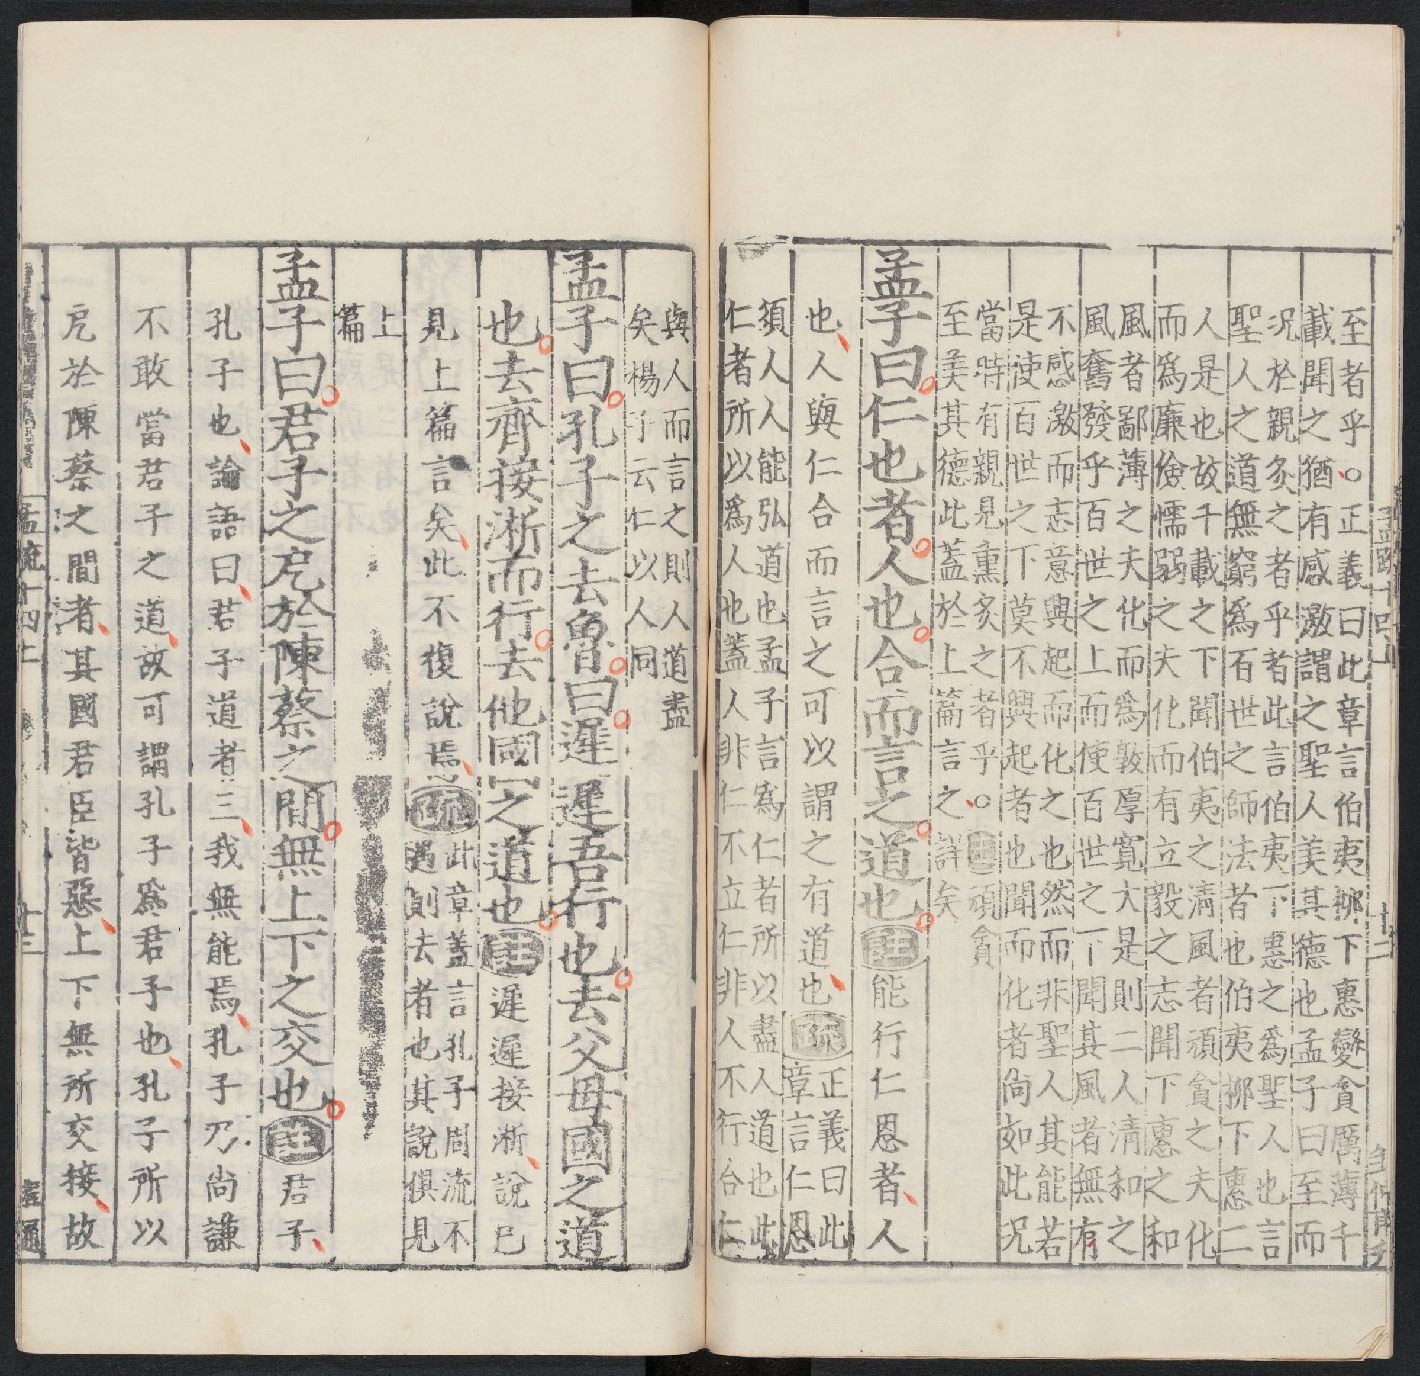 至者乎○正義曰此章言伯夷柳下惠變貪厲薄千
載聞之猶有感激謂之聖人美其德也孟子曰至而
況於親炙之者乎者此言伯夷下惠之爲聖人也言
聖人之道無窮爲百世之師法者也伯夷柳下惠二
人是也故千載之下聞伯夷之淸風者頑貪之夫化
而爲廉儉懦弱之夫化而有立毅之志聞下惠之和
風者鄙薄之夫化而爲敦厚寬大是則二人淸和之
風奮發乎百世之上而使百世之下聞其風者無有
不感激而志意興起而化之也然而非聖人其能若
是使百世之下莫不興起者也聞而化者尙如此況
當時有親見熏炙之者乎○註頑貪
至美其德此蓋於上篇言之詳矣
孟子曰仁也者人也合而言之道也註能行仁恩者人
也人與仁合而言之可以謂之有道也疏正義曰此
章言仁恩
須人人能弘道也孟子言爲仁者所以盡人道也此
仁者所以爲人也蓋人非仁不立仁非人不行合仁
與人而言之則人道盡
矣楊子云仁以人同
孟子曰孔子之去魯曰遲遲吾行也去父母國之道
也去齊接淅而行去他國之道也註遲遲接淅說已
見上篇言矣此不復說焉疏此章蓋言孔子周流不
遇則去者也其說俱見
上
篇
孟子曰君子之戹於陳蔡之間無上下之交也註君子
孔子也論語曰君子道者三我無能焉孔子乃尙謙
不敢當君子之道故可謂孔子爲君子也孔子所以
戹於陳蔡之間者其國君臣皆惡上下無所交接故
孟疏十四上
十三